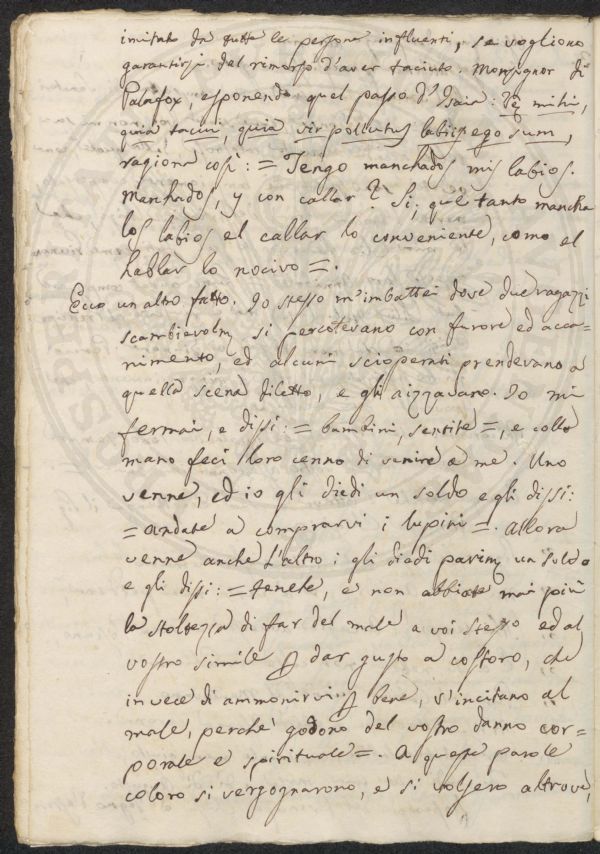 imitato da tutte le persone influenti, se vogliono
garantirsi del rimorso d'aver taciuto. Monsignor di
Palafox, esponendo quel passo d'Isaia: Vę mihi,
quia tacui, quia vir pollutus labiis ego sum,
ragiona così: = Tengo manchados mis labios.
Manchados, y con callar? Si; què tanto mancha
los labios el callar lo conveniente, como el
hablar lo nocivo =.
Ecco un altro fatto. Io stesso m'imbattei dove due ragazzi
scambievolm si percotevano con furore ed acca=
nimento, ed alcuni scioperati prendevano a
quella scena diletto, e gli aizzavano. Io mi
fermai, e dissi: = bambini, sentite =, e colla
mano feci loro cenno di venire a me. Uno
venne, ed io gli diedi un soldo e gli dissi:
= andate a comprarvi i lupini =. Allora
venne anche l'altro; gli diedi parim un soldo
e gli dissi: = tenete, e non abbiate mai più
la stoltezza di far del male a voi stesso ed al
vostro simile p dar gusto a costoro, che
in vece di ammonirvi p bene, v'incitano al
male, perchè godono del vostro danno cor=
porale e spirituale =. A queste parole
coloro si vergognarono, e si volsero altrove,